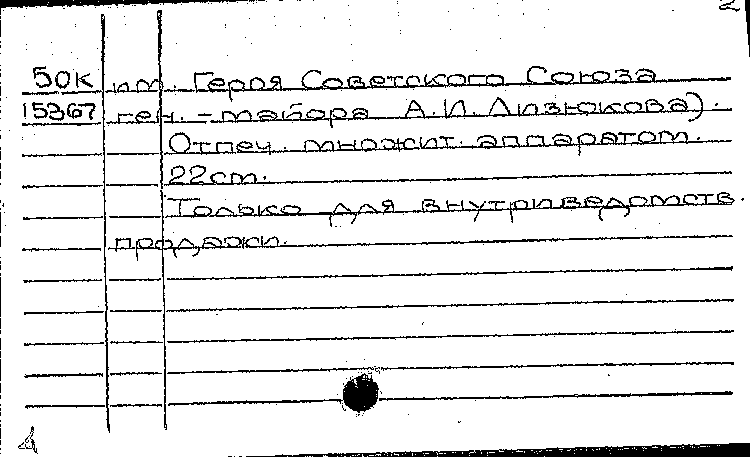 2
50К им. Героя Советского Союза
15367 ген.-майора А.И. Лизюкова).
Отпеч. множит. аппаратом.
22cm.
Только для внутриведомств.
продажи.